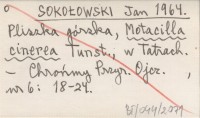 SOKOŁOWSKI Jan 1964.
Pliszka górska, Motacilla
cinerea Tunst. w Tatrach.
– Chrońmy Przyr. Ojcz.,
nr 6: 18-24.